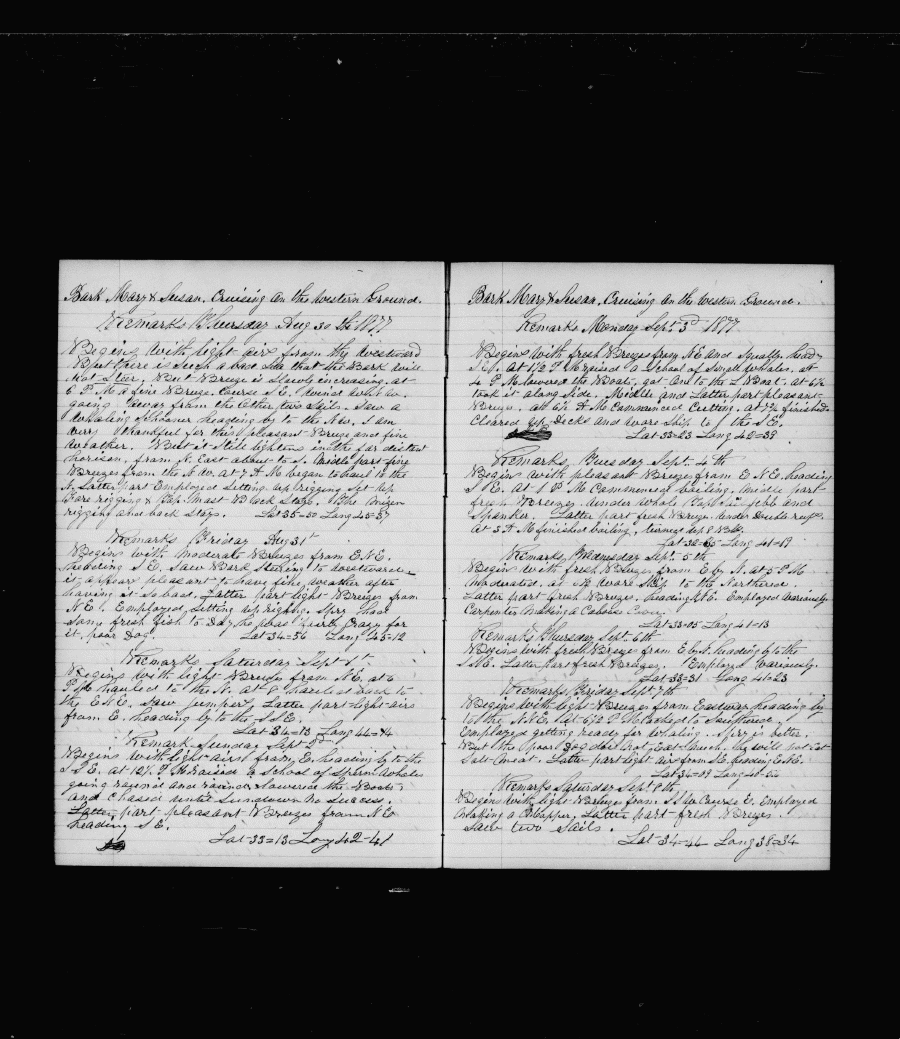 Bark Mary & Susan. Cruising On the Western Ground.
Remarks Thursday Aug 30th 1877
Begins with light airs from the Westward
But there is such a bad Sea that the Bark will
Not Steer, But Breeze is Slowly encreasing, at
6 P M a fine Breeze, Course S E.
going from the Other two Sail. Saw a
Whaling Schooner heading by to the N W. I am
Very thankful for this pleasant Breeze and fine
Weather. But it Still lightens in the far distant
horison, from N. East about to S. Middle part fine
Breezes from the N W. at 7 A M began to haul to the
N. Latter part Employed Setting up rigging Set up
Fore rigging & Top Mast Back Stays. Mizen
rigging and back Stays. Lat 35=50 Long 45=37
Remarks Friday Aug 31st
Begins with moderate Breezes from E N E.
heading S E. Saw Bark Stering to Westward
is appear pleasant to have fine Weather after
having it So bad. Latter part light Breezes from
N E. Employed Setting up riging. Spry had
Som fresh fish to Day, he was quite Crazy for
it, poor Dog. Lat 34=56 Long 45=12
Remarks Saturday Sept 1st
Begins With light Breezes from N E. at 6
P M hauled to the N. at 8 hauled back to
the E N E. Saw jumper, Latter part light airs
from E. heading by to the S S E.
Lat 34=13 Long 44=14
Remark Sunday Sept 2d
Begins with light airs from E. heading by to the
S S E. at 12½ P M raised a School of Sperm Whales
going round and round lowered the Boats
and Chased until Sundown No Success.
Latter part pleasant Breezes from N E
heading S E.
Lat 33=13 Long 42-41
Bark Mary & Susan. Cruising On the Western Ground.
Remarks Monday Sept 3d 1877
Begins with fresh Breezes from N E and Squally heading
S E. at 1½ P M raised a School of Small Whales. at
4 P M lowered the Boats, got One to the L Boat. at 6½
took it along Side. Middle and Latter part pleasant
Breeze. at 6½ A M Commenced Cutting, at 7¾ finished
Cleared up Decks and Wore Ship to the S E.
Lat 33-23 Long 42-38
Remarks Tuesday Sept. 4th
Begins with pleasant Breezes from E N E, heading
S E. at 1 P M Commenced boiling, Middle part
fresh Breezes, Under Whole Topsail jibb and
Spanker. Latter part fresh Breeze. Under Double reefs.
at 3 A M finished boiling, turned up 8 Bbls
Lat 32=65 Long 41=19
Remarks Wednesday Sept. 5th
Begins with fresh Breezes from E by N. at 5 P M
Moderated, at Wore Ship to the Northerd.
Latter part fresh Breezes, heading N E. Employed Variously
Carpenter Making a Caboose Cover.
Lat 33=05 Long 41-13
Remarks Thursday Sept. 6th
Begins with fresh Breeze from E by N. heading by to the
Latter part fresh Breezes. Employed Variously.
Lat 33=31 Long 41=23
Remarks Friday Sept 7th
Begins with light Breezes from Eastward heading by
to the N N E. at 6½ P M tacked to Southerd.
Employed getting ready for Whaling. Spry is better.
But the poor Dog does Not Eat Much, he will not eat
Salt Meat. Latter part light air from S E. heading E N E.
Lat 34=09 Long 40
Remarks Saturday Sept 8th
Begins with light Breeze from S S W Course E. Employed
Making a Wapper, Latter part fresh Breezes.
Saw two Sails.
Lat 34-44 Long 38=34